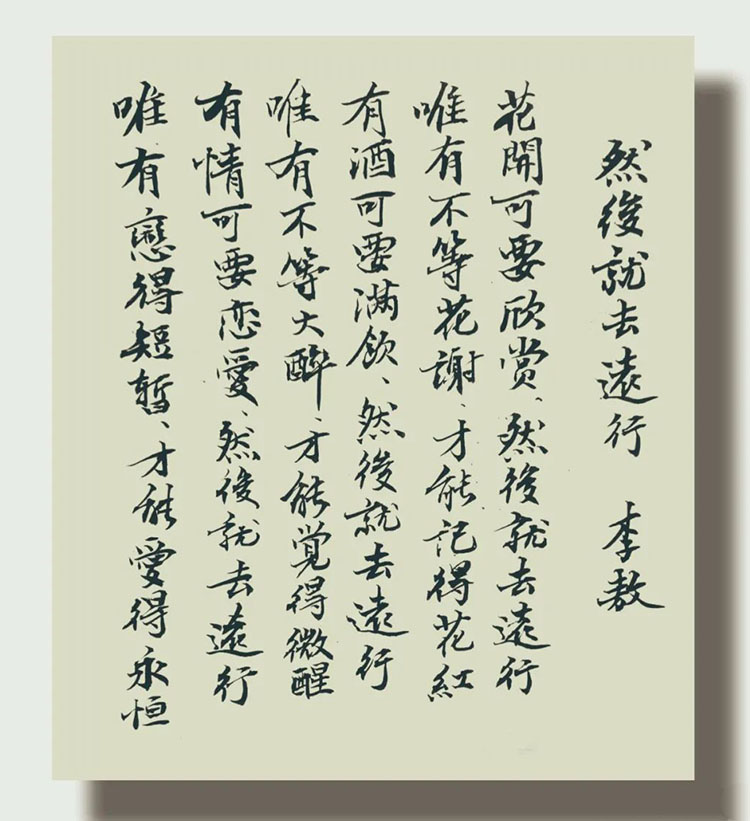 然後就去遠行 李敖
花開可要欣賞、然後就去遠行
唯有不等花謝、才能記得花紅
有酒可要滿飲、然後就去遠行
唯有不等大醉、才能覺得微醒
有情可要恋愛、然後就去遠行
唯有戀得短暫、才能愛得永恒